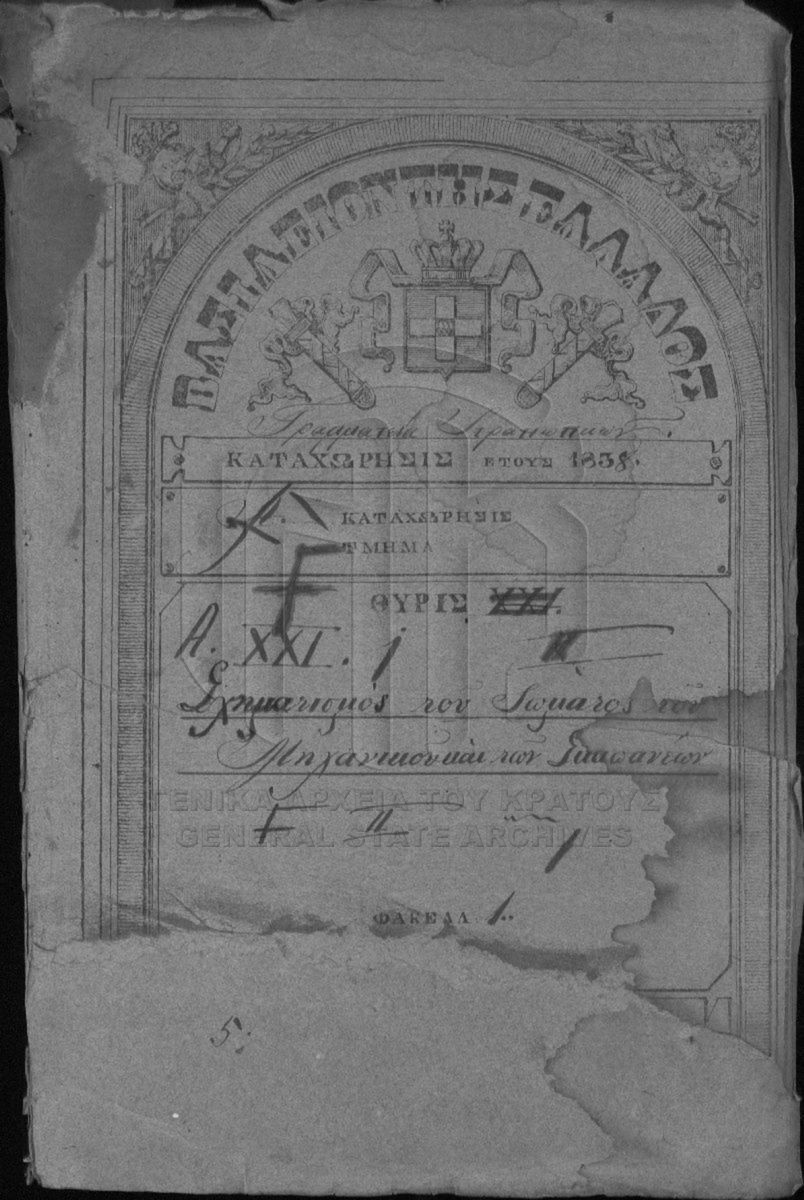 ΒΑΣΙΛΕΙΟΝ ΤΗΣ ΕΛΛΑΔΟΣ
Γραμματεία Στρατιωτικῶν.
ΚΑΤΑΧΩΡΗΣΙΣ ΕΤΟΥΣ 1838.
ΚΑΤΑΧΩΡΗΣΙΣ
ΤΜΗΜΑ
F
ΘΥΡΙΣ XXI.
A. XXI. 1 II
Σχηματισμός του Σώματος του
Μηχανικού και των Σκαπανέων
ΓΕΝΙΚΑ ΑΡΧΕΙΑ ΤΟΥ ΚΡΑΤΟΥΣ
GENERAL STATE ARCHIVES
F II 1
ΦΑΚΕΛΛ 1.
5.